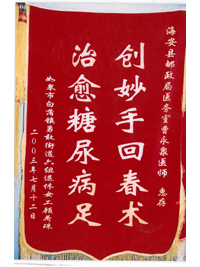 海安县邮政局医务室曹永泉医师 惠存
创妙手回春术
治愈糖尿病足
如皋市白蒲镇勇敢街道六组退休女工顾秀珠
二00三年七月十二日